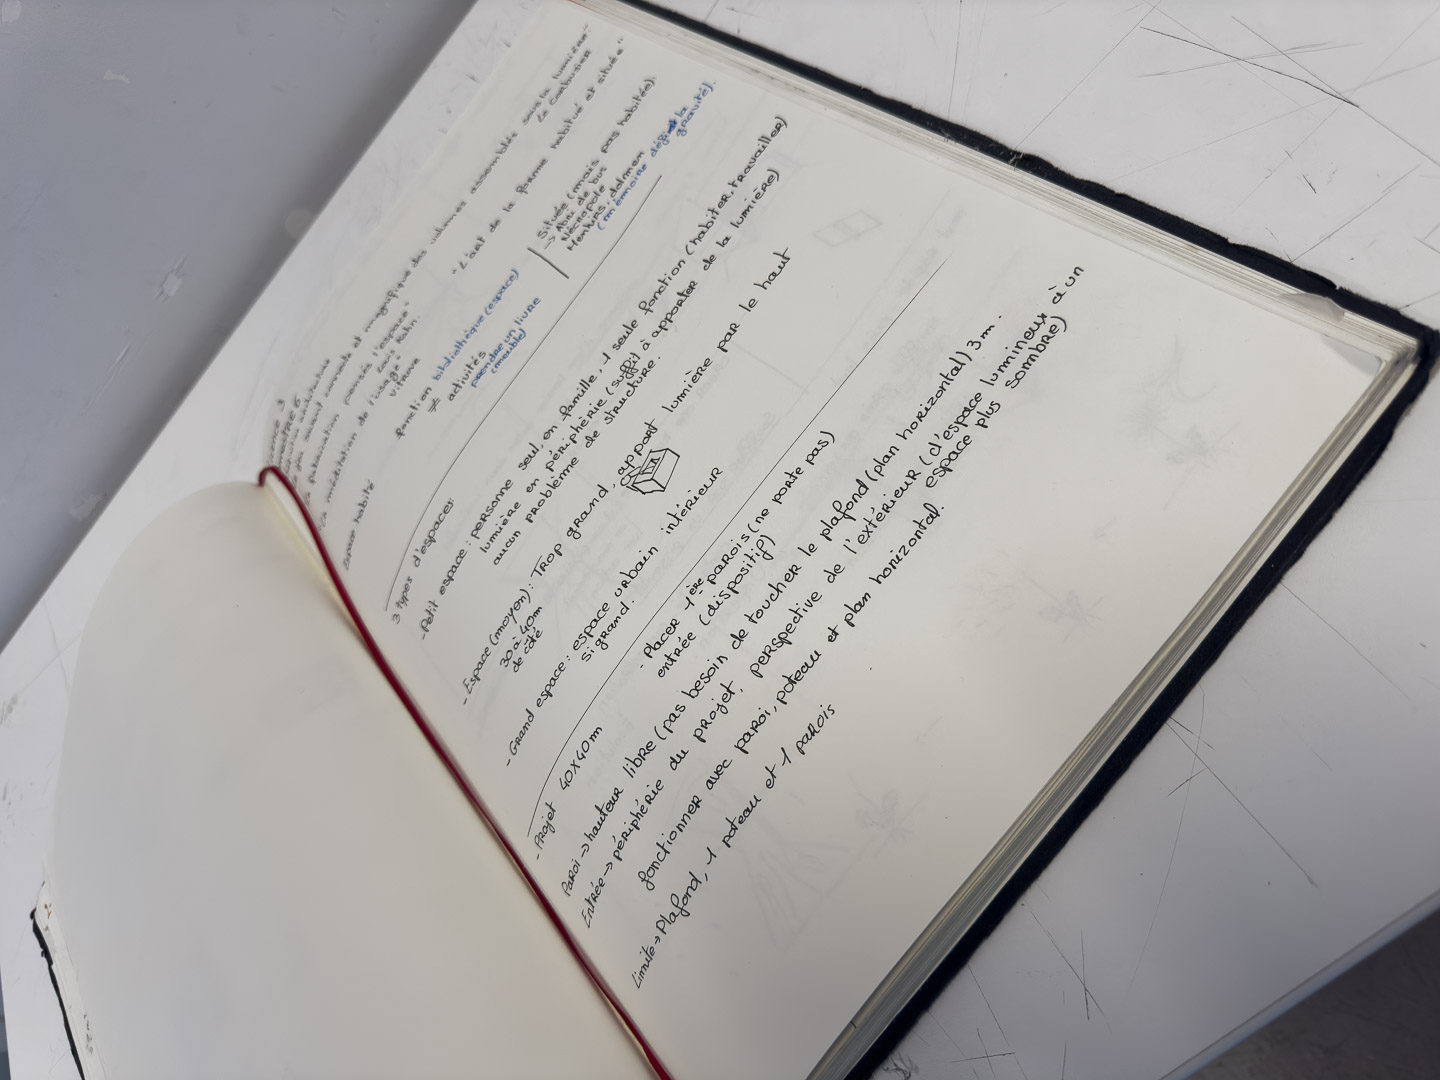 jeu savant correct et magnifique des volumes assemblés sous la lumière"
Le Corbusier
pensée l'espace"
Louis Kahn.
"L'art de la forme habitué et située"
la méditation de l'usage"
Vitruve
Espace habité
fonction bibliothèque (espace)
≠
activités
prendre un livre
(meuble)
Située (mais pas habitée).
-> Abri de bus
Nécropole
Menhirs, dolmen
(mémoire défi la
gravité).
3 types d'espaces:
-Petit espace: personne seul, en famille, 1 seule fonction (habiter, travailler)
lumière en périphérie (suffit à apporter de la lumière)
aucun problème de structure.
- Espace (moyen): Trop grand, apport lumière par le haut
30 à 40m
de côté
- Grand espace: espace urbain intérieur
si grand.
- Projet 40x40m
- Placer 1ère parois (ne porte pas)
entrée (dispositif)
Paroi -> hauteur libre (pas besoin de toucher le plafond (plan horizontal) 3m.
Entrée -> périphérie du projet, perspective de l'extérieur (d'espace lumineux à un
espace plus sombre)
fonctionner avec paroi, poteau et plan horizontal.
Limite -> Plafond, 1 poteau et 1 parois